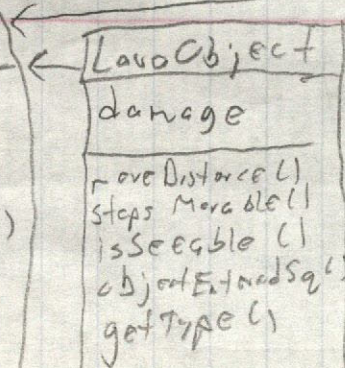 LavaObject
damage
moveDistance()
stops Movable()
isSeeable ()
objectEnteredSq()
getType()
)